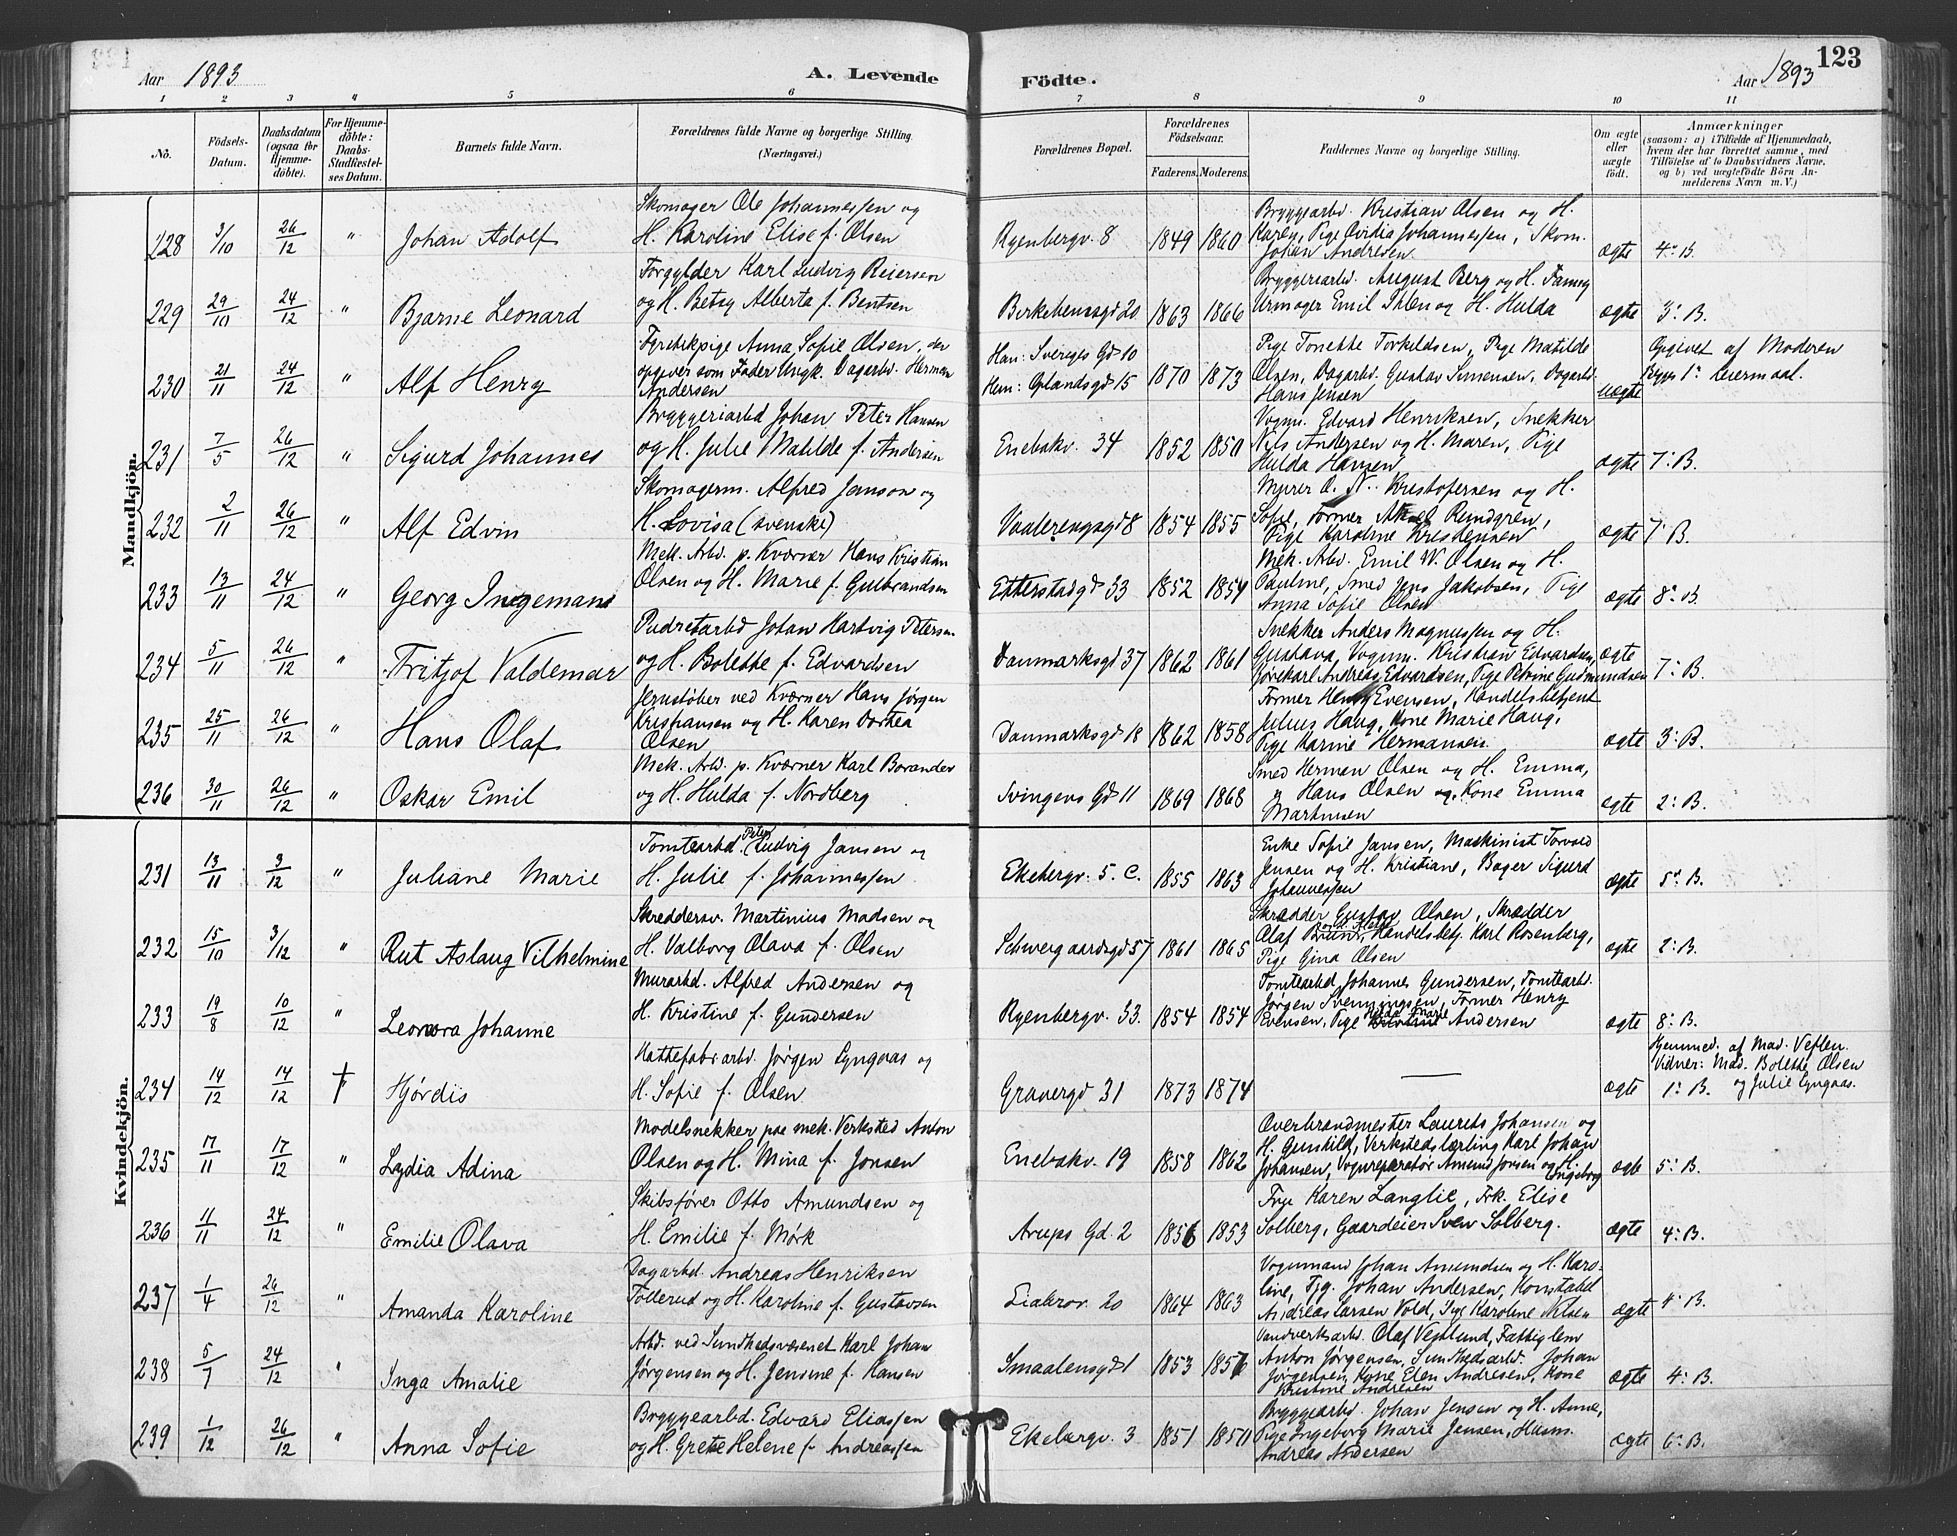 Aar 1893 A. Levende Födte. Aar 1893 123
1 2 3 4 5 6 7 8 9 10 11
No. Födsels-Datum. Daabsdatum (ogsaa for Hjemme-döbte). For Hjemme-döbte: Daabs-Stadfæstel-ses Datum. Barnets fulde Navn. Forældrenes fulde Navne og borgerlige Stilling. (Næringsvei.) Forældrenes Bopæl. Forældrenes Födselsaar. Faderens. Moderens. Faddernes Navne og borgerlige Stilling. Om ægte eller uægte födt. Anmærkninger (saasom: a) i Tilfælde af Hjemmedaab, hvem der har forrettet samme, med Tilföielse af to Daabsvidners Navne, og b) ved uægtefödte Börn An-melderens Navn m. V.)
Mandkjön.
228 3/10 26/12 " Johan Adolf
Skomager Ole Johannessen og
H. Karoline Elise f. Olsen
Ryenbergv. 8 1849 1860
Bryggearbd. Kristian Olsen og H.
Karen, Pige Ovidia Johannessen, Skom.
Johan Andresen
ægte 4: B.
229 29/10 24/12 " Bjarne Leonard
Forgylder Karl Ludvig Reiersen
og H. Betsy Alberta f. Bentsen
Birkebensgd 20 1863 1866
Bryggeriarbd. August Berg og H. Fanny
Urmager Emil Ihlen og H. Hulda
ægte 3: B.
230 21/11 24/12 " Alf Henry
Fyrstikpige Anna Sofie Olsen, der
opgiver som Fader Ungk. Dagarbd. Herman
Andersen
Han: Sveriges Gd 10
Hun: Oplandsgd 15
1870 1873
Pige Tonette Torkildsen, Pige Matilde
Olsen, Dagarbd. Gustav Simensen, Dagarbd.
Hans Jensen
uægte
Opgivet af Moderen
Begges 1: Leiermaal.
231 7/5 26/12 " Sigurd Johannes
Bryggeriarbd Johan Peter Hansen
og H. Julie Matilde f. Andersen
Enebakv. 34 1852 1850
Vogm. Edvard Henriksen, Snekker
Nils Andersen og H. Maren, Pige
Hulda Hansen
ægte 7: B.
232 2/11 26/12 " Alf Edvin
Skomagerm. Alfred Janson og
H. Lovisa (svenske)
Vaalerengsgd 8 1854 1855
Myrer O. N. Kristofersen og H.
Sofie, Former Axel Rundgren,
Pige Karoline Kristensen
ægte 7: B.
233 13/11 24/12 " Georg Ingemann
Mek. Arbd. p. Kværner Hans Kristian
Olsen og H. Marie f. Gulbrandsen
Etterstadgd 33 1852 1854
Mek. Arbd. Emil W. Olsen og H.
Pauline, Smed Jens Jakobsen, Pige
Anna Sofie Olsen
ægte 8: B.
234 5/11 26/12 " Fritjof Valdemar
Pudretarbd Johan Hartvig Petersen
og H. Bolette f. Edvardsen
Danmarksgd 37 1862 1861
Snekker Anders Magnussen og H.
Gustava, Vognm. Kristian Edvardsen,
Kjørekarl Andreas Edvardsen, Pige Petrine Gudmundsen
ægte 7: B.
235 25/11 26/12 " Hans Olaf
Jernstøber ved Kværner Hans Jørgen
Kristiansen og H. Karen Dortea
Olsen
Danmarksgd 18 1862 1858
Former Henry Evensen, Handelsbetjent
Julius Haug, Kone Marie Haug,
Pige Karine Hermansen
ægte 3: B.
236 30/11 26/12 " Oskar Emil
Mek. Arbd. p. Kværner Karl Borander
og H. Hulda f. Nordberg
Svingens Gd 11 1869 1868
Smed Herman Olsen og H. Emma,
Hans Olsen og Kone Emma
Martinsen
ægte 2: B.
Kvindekjön.
231 13/11 3/12 " Juliane Marie
Tomtearbd. Peter Ludvig Jansen og
H. Julie f. Johannessen
Ekebergv. 5. C. 1855 1863
Enke Sofie Jansen, Maskinist Torvald
Jensen og H. Kristiane, Bager Sigurd
Johannessen
ægte 5: B.
232 15/10 3/12 " Rut Aslaug Vilhelmine
Skreddersv. Martinius Madsen og
H. Valborg Olava f. Olsen
Schweigaardsgd 57 1861 1865
Skrædder Gustav Olsen, Skrædder
Olaf Bruun, Handelsbetj. Karl Rosenberg,
Pige Gina Olsen
ægte 2: B.
233 19/8 10/12 " Leonora Johanne
Murarbd. Alfred Andersen og
H. Kristine f. Gundersen
Ryenbergv. 33. 1854 1854
Tomtearbd Johannes Gundersen, Tomtearbd.
Jørgen Svenningsen, Former Henry
Evensen, Pige Hilda Marie Andersen
ægte 8: B.
234 14/12 14/12 † Hjørdis
Hattefabr.arbd. Jørgen Lyngaas og
H. Sofie f. Olsen
Gravergd 31 1873 1874
—
ægte
Hjemmed. af Mad. Veflen.
Vidner: Mad. Bolette Olsen
1: B. og Julie Lyngaas.
235 17/11 17/12 " Lydia Adina
Modelsnekker paa mek. Verksted Anton
Olsen og H. Mina f. Jonsen
Enebakv. 19 1858 1862
Overbrandmester Laurits Johansen og
H. Gunhild, Verkstedslærling Karl Johan
Johansen, Vognreparatør Amund Jonsen og H. Ingeborg
ægte 5: B.
236 11/11 24/12 " Emilie Olava
Skibsfører Otto Amundsen og
H. Emilie f. Mørk
Arups Gd. 2 1856 1853
Frue Karen Langlie, Frk. Elise
Solberg, Gaardeier Sven Solberg.
ægte 4: B.
237 1/4 26/12 " Amanda Karoline
Dagarbd. Andreas Henriksen
Tollerud og H. Karoline f. Gustavsen
Liabrov. 20 1864 1863
Vognmand Johan Amundsen og H. Karo-
line, Tjg. Johan Andersen, Konstabel
Andreas Larsen Vold, Pige Karoline Nilsen
ægte 4: B.
238 5/7 24/12 " Inga Amalie
Arbd. ved Sundhedsvæsenet Karl Johan
Jørgensen og H. Jensine f. Hansen
Smaalensgd 1 1853
Vandverksarbd. Olaf Vestlund, Fattiglem
Anton Jørgensen, Sundhedsarbd. Johan
Jørgensen, Kone Elen Andresen, Kone
Kristine Andresen
ægte 4: B.
239 1/12 26/12 " Anna Sofie
Bryggearbd. Edvard Eliassen
og H. Grete Helene f. Andreassen
Ekebergv. 3 1851 1850
Bryggearbd. Johan Jensen og H. Anne,
Pige Ingeborg Marie Jensen, Husm.
Andreas Andersen
ægte 6: B.